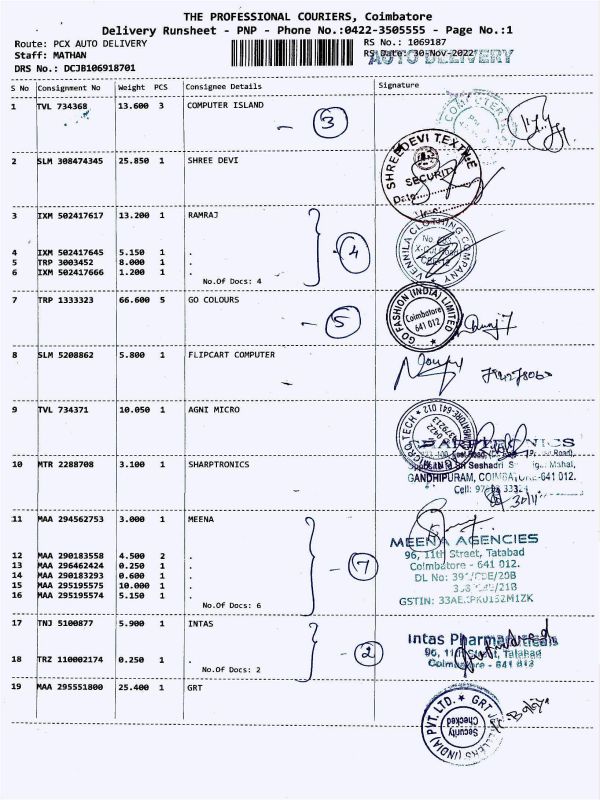 THE PROFESSIONAL COURIERS, Coimbatore
Delivery Runsheet - PNP - Phone No.:0422-3505555 - Page No.:1
Route: PCX AUTO DELIVERY
RS No.: 1069187
Staff: MATHAN
RS Date: 30-Nov-2022
AUTO DELIVERY
DRS No.: DCJB106918701
S No Consignment No Weight PCS Consignee Details Signature
1 TVL 734368 13.600 3 COMPUTER ISLAND
- 3
2 SLM 308474345 25.850 1 SHREE DEVI
SHREEDEVI TEXTILE
SECURITY
Date
3 IXM 502417617 13.200 1 RAMRAJ
4 IXM 502417645 5.150 1 .
5 TRP 3003452 8.000 1 .
6 IXM 502417666 1.200 1 .
No.Of Docs: 4
- 4
VENNILA CLOTHING COMPANY
7 TRP 1333323 66.600 5 GO COLOURS
- 5
GO FASHION (INDIA) LIMITED
Coimbatore
641 012
8 SLM 5208862 5.800 1 FLIPCART COMPUTER
9 TVL 734371 10.050 1 AGNI MICRO
10 MTR 2288708 3.100 1 SHARPTRONICS
GANDHIPURAM, COIMBATORE-641 012.
30/11
11 MAA 294562753 3.000 1 MEENA
12 MAA 290183558 4.500 2 .
13 MAA 296462424 0.250 1 .
14 MAA 290183293 0.600 1 .
15 MAA 295195575 10.000 1 .
16 MAA 295195574 5.150 1 .
No.Of Docs: 6
- 7
MEENA AGENCIES
96, 11th Street, Tatabad
Coimbatore - 641 012.
17 TNJ 5100877 5.900 1 INTAS
18 TRZ 110002174 0.250 1 .
No.Of Docs: 2
- 2
Intas Pharmaceuticals
96, 11th Street, Tatabad
Coimbatore - 641 012
19 MAA 295551800 25.400 1 GRT
GRT JEWELLERS (INDIA) PVT. LTD.
Security
Checked